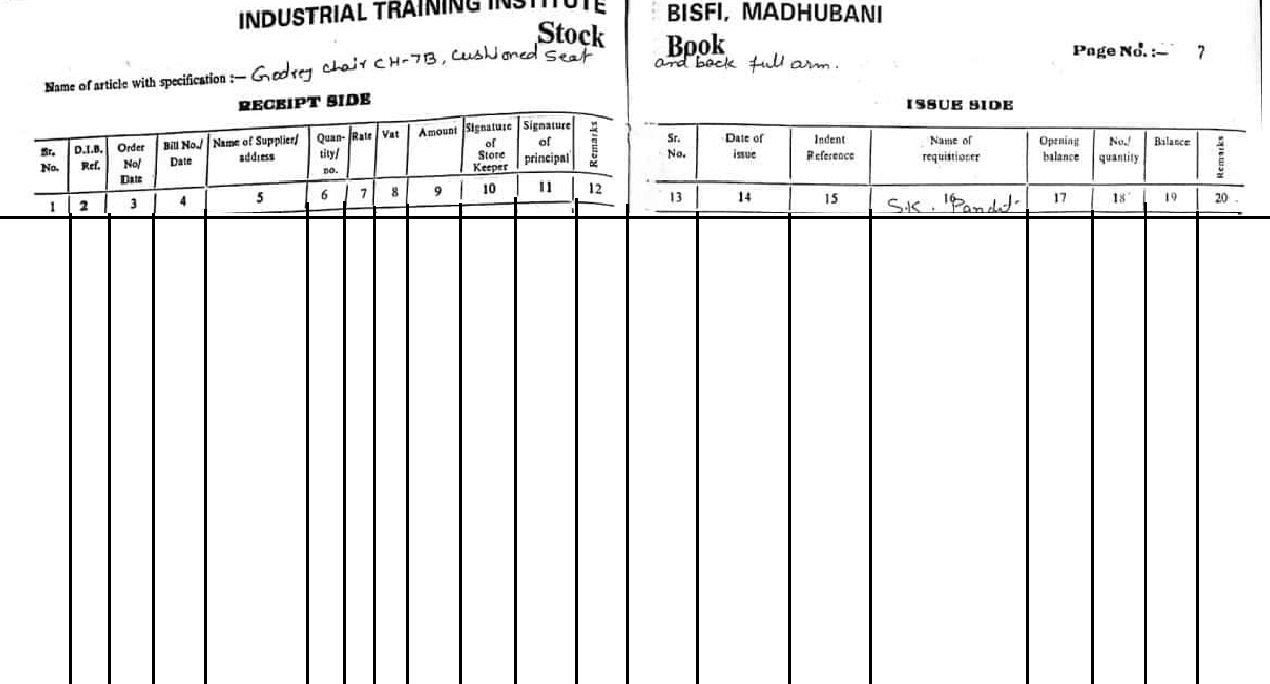 INDUSTRIAL TRAINING INSTITUTE BISFI, MADHUBANI
Stock Book
Page No. :- 7
Name of article with specification :- Godrej chair CH-7B, Cushioned Seat
and back full arm.
RECEIPT SIDE
ISSUE SIDE
Sr. No. | D.I.B. Ref. | Order No/ Date | Bill No./ Date | Name of Supplier/ address | Quan- tity/ no. | Rate | Vat | Amount | Signature of Store Keeper | Signature of principal | Remarks
1 2 3 4 5 6 7 8 9 10 11 12
Sr. No. | Date of issue | Indent Reference | Name of requistioner | Opening balance | No./ quantity | Balance | Remarks
13 14 15 16 17 18 19 20
S.K. Pandit